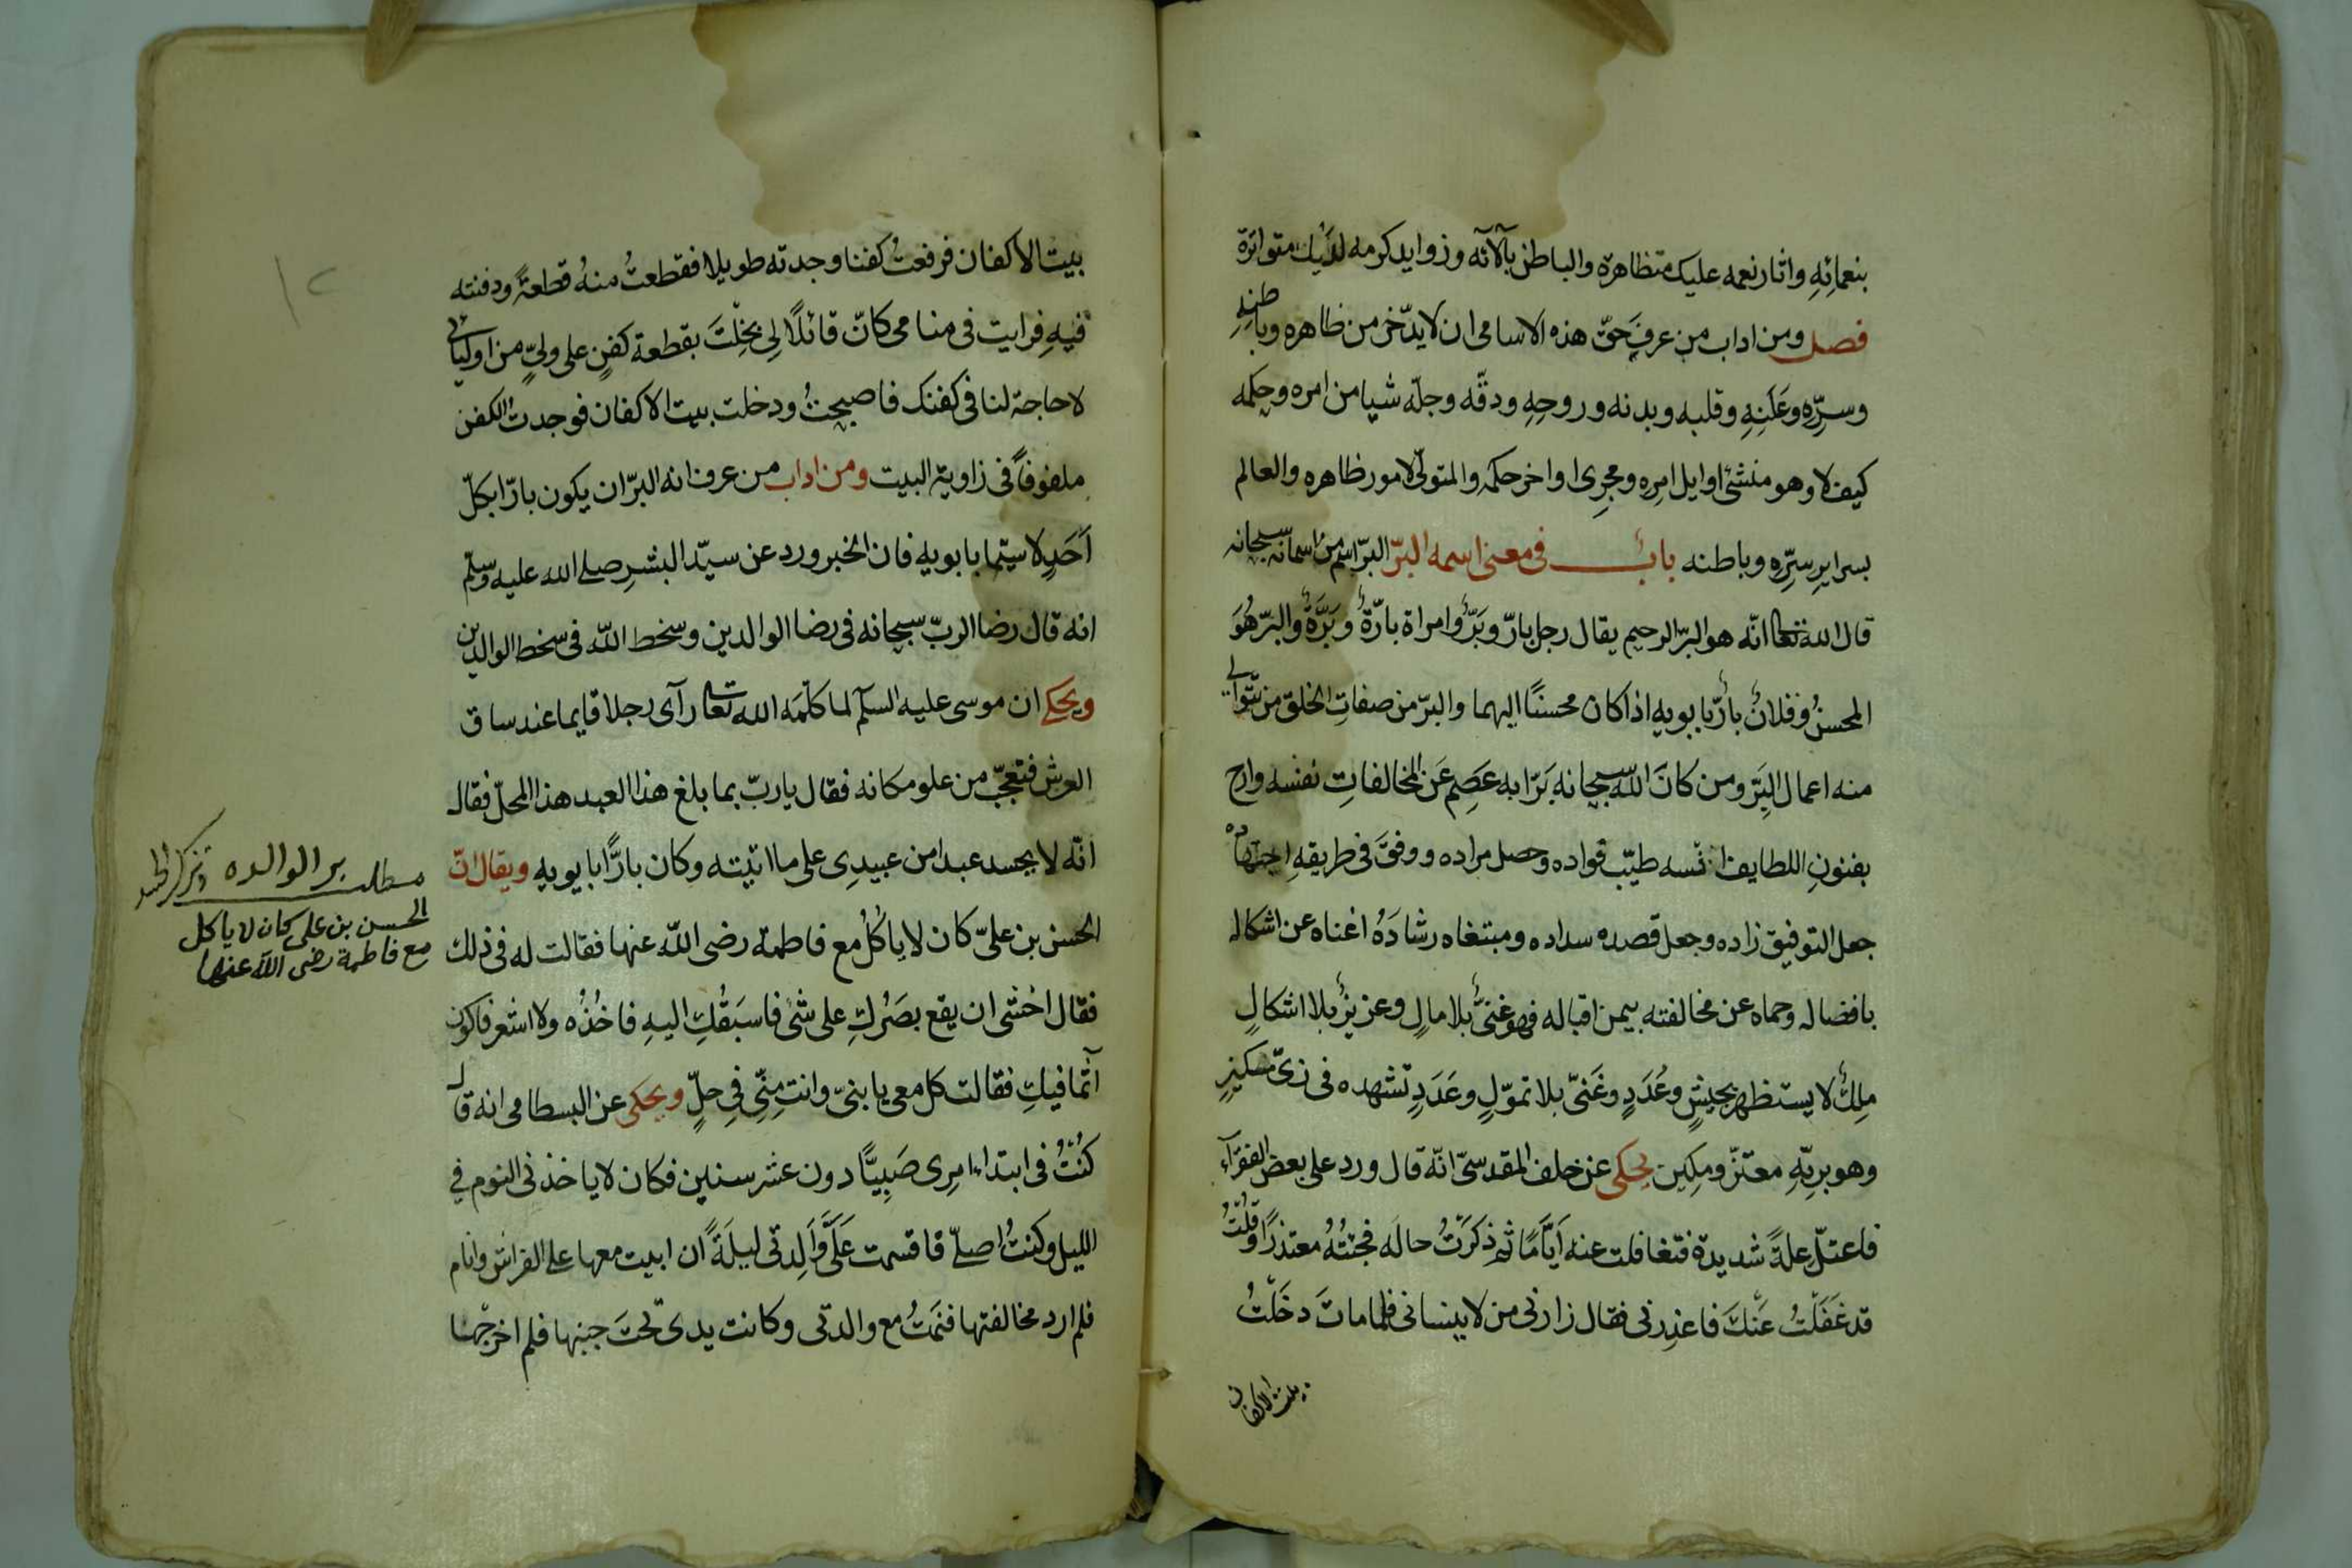 بنعمائه واثار نعمه عليك متظاهرة والباطن بآلآئه وزوايد كرمه لديك متواترة
فصل ومن اداب من عرف حق هذه الاسامى ان لا يدّخر من ظاهره وباطنه
وسرّه وعلنه وقلبه وبدنه وروحه ودقّه وجلّه شيا من امره وحكمه
كيف لا وهو منشئ اوايل امره ومجرى اواخر حكمه والمتولّى لامور ظاهره والعالم
بسراير سرّه وباطنه باب فى معنى اسمه البرّ البرّ اسم من اسمائه سبحانه
قال الله تعالى انّه هو البرّ الرحيم يقال رجل بارّ وبَرّ وامراة بارّة وبَرَّة والبرّ هُوَ
المحسنُ وفلانٌ بارٌّ بابويه اذا كان محسنًا اليهما والبرّ من صفاتِ الخلق من تتوالى
منه اعمال البِرّ ومن كانَ اللّه سبحانه بَرّا به عَصِم عَن المخالفاتِ نفسه وادام
بفنون اللطايف انسه طيّب فواده وحصل مراده ووفقَ فى طريقهِ اجتهاده
جعل التوفيق زاده وجعل قصده سداده ومبتغاه رشادَهُ اغناه عن اشكاله
بافضاله وحماه عن مخالفته بيمن اقباله فهو غنىٌّ بلا مالٍ وعزيزٌ بلا اشكالٍ
ملِكٌ لا يستظهر بجيشٍ وعُدَدٍ وغَنىّ بلا تموّلٍ وعَدَدٍ تشهده فى زىّ مسكينٍ
وهو بربّهِ معتزّ ومكين يحكى عن خلف المقدسىّ انّه قال ورد على بعض الفقرآء
فاعتلّ علةً شديدة فتغافلت عنه اَيَّامًا ثم ذكرَتُ حاله فجئتُهُ معتذرًا وقُلْتُ
قد غَفَلْتُ عَنْكَ فاعذرنى فقال زارنى من لا ينسانى فلما ماتَ دخَلْتُ
بيت الاكفان
بيت الاكفان فرفعتُ كفنا وجدته طويلا فقطعتُ منهُ قطعةً ودفنته
فيهِ فرايت فى منامى كانّ قائلًا لِى بخِلْتَ بقطعة كفنٍ على ولىٍّ من اوليائى
لا حاجة لنا فى كفنك فاصبحتُ ودخلت بيت الاكفان فوجدت الكفن
ملفوفاً فى زاوية البيت ومن اداب من عرف انه البرّ ان يكون بارّا بكلّ
اَحَدٍ لا سيّما بابويه فان الخبر ورد عن سيّد البشر صلى الله عليه وسلّم
انه قال رضا الربّ سبحانه فى رضا الوالدين وسخط اللّه فى سخط الوالدين
ويحكى ان موسى عليه السلم لما كلّمَه الله تعالى رآى رجلا قايما عند ساق
العرش فتعجّب من علو مكانه فقال يا ربّ بما بلغ هذا العبد هذا المحلّ فقال
انّه لا يحسد عبدا من عبيدِى على ما اتيته وكان بارًّا بابويه ويقال انّ
الحسن بن علىّ كان لا ياكُلُ مع فاطمة رضى اللّه عنها فقالت له فى ذلك
فقال اخشى ان يقع بصَرُكِ على شئ فاسبَقُكِ اليهِ فاخُذُه ولا اشعر فاكون
آثما فيكِ فقالت كل معى يا بنىّ وانت مِنّى فِى حلٍّ ويحكى عن البسطامى انه قال
كُنْتُ فى ابتداء امرِى صَبِيًّا دون عشر سنين فكان لا ياخذنى النوم فى
الليل وكنتُ اصلّى فاقسمت عَلَىَّ وَالِدتى ليلَةً ان ابيت معها على الفراش وانام
فلم ارد مخالفتها فنَمتُ مع والدتى وكانت يدى تحتَ جنبها فلم اخرجْها
مطلب بر الوالده
الحسن بن على كان لا ياكل
مع فاطمة رضى الله عنها
١٢